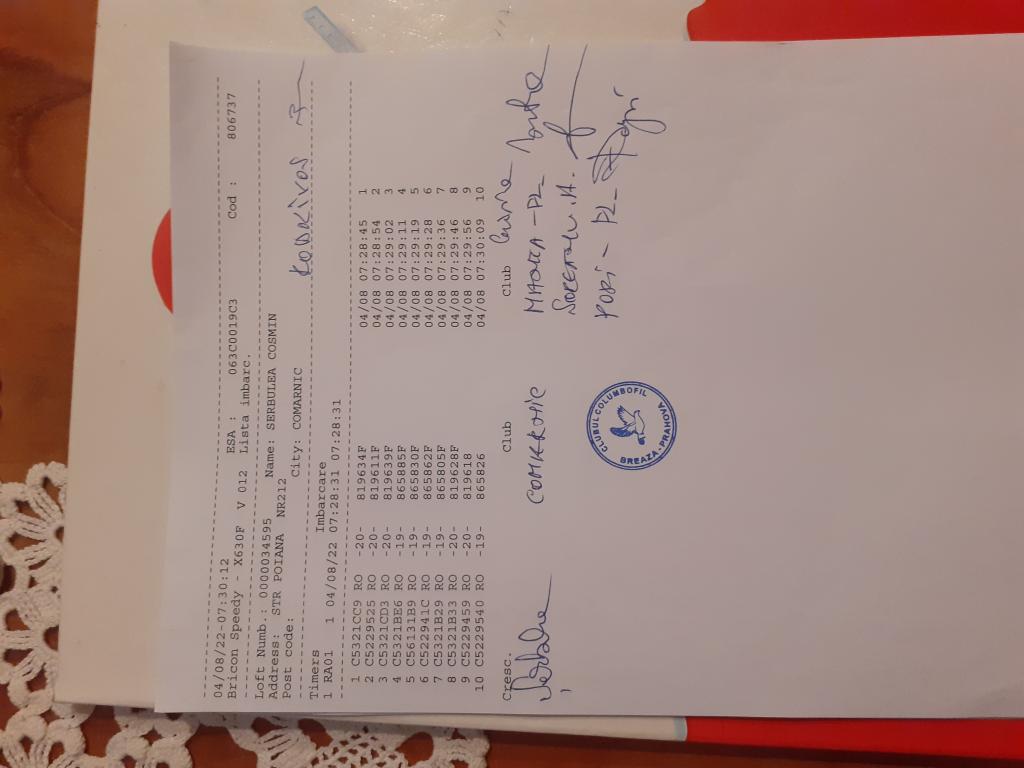 04/08/22-07:30:12 ESA : 063C0019C3 Cod : 806737
Bricon Speedy - X630F V 012 Lista imbarc.
Loft Numb.: 0000034595 Name: SERBULEA COSMIN
Address: STR POIANA NR212
Post code: City: COMARNIC
Timers Imbarcare
1 RA01 1 04/08/22 07:28:31 07:28:31
1 C5321CC9 RO -20- 819634F 04/08 07:28:45 1
2 C5229525 RO -20- 819611F 04/08 07:28:54 2
3 C5321CD3 RO -20- 819639F 04/08 07:29:02 3
4 C5321BE6 RO -19- 865885F 04/08 07:29:11 4
5 C56131B9 RO -19- 865830F 04/08 07:29:19 5
6 C522941C RO -19- 865862F 04/08 07:29:28 6
7 C5321B29 RO -19- 865805F 04/08 07:29:36 7
8 C5321B33 RO -20- 819628F 04/08 07:29:46 8
9 C5229459 RO -20- 819618 04/08 07:29:56 9
10 C5229540 RO -19- 865826 04/08 07:30:09 10
Cresc. Club Club
CLUBUL COLUMBOFIL
BREAZA-PRAHOVA